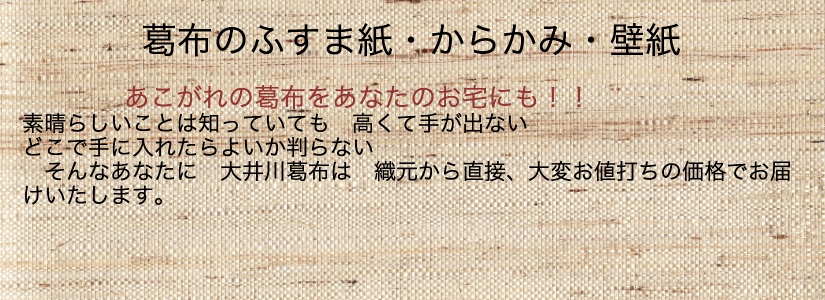 葛布のふすま紙・からかみ・壁紙
あこがれの葛布をあなたのお宅にも！！
素晴らしいことは知っていても　高くて手が出ない
どこで手に入れたらよいか判らない
　そんなあなたに　大井川葛布は　織元から直接、大変お値打ちの価格でお届
けいたします。